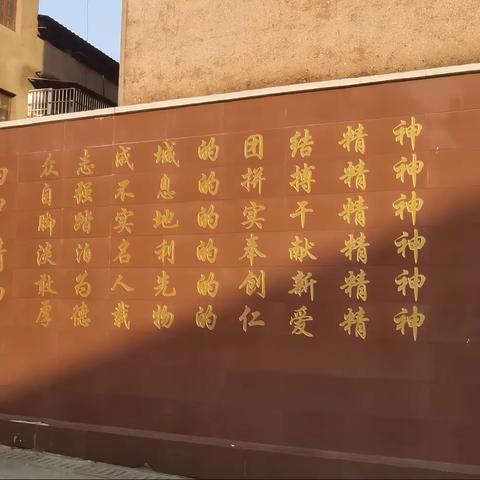 众志成城的团结精神
自强不息的拼搏精神
脚踏实地的实干精神
淡泊名利的奉献精神
敢為人先的创新精神
厚德载物的仁爱精神